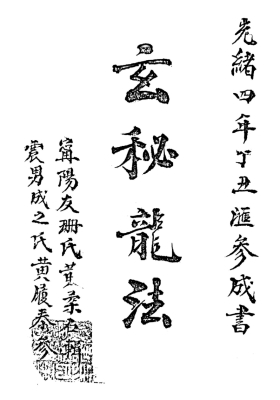 光緒四年丁丑滙參成書
玄秘龍法
寗陽友珊氏黃石輯
震男成之氏黃履泰參